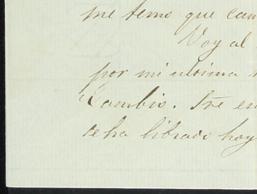 me temo que cam
Voy al
por mi ultima
Cambio.
se ha librado hoy